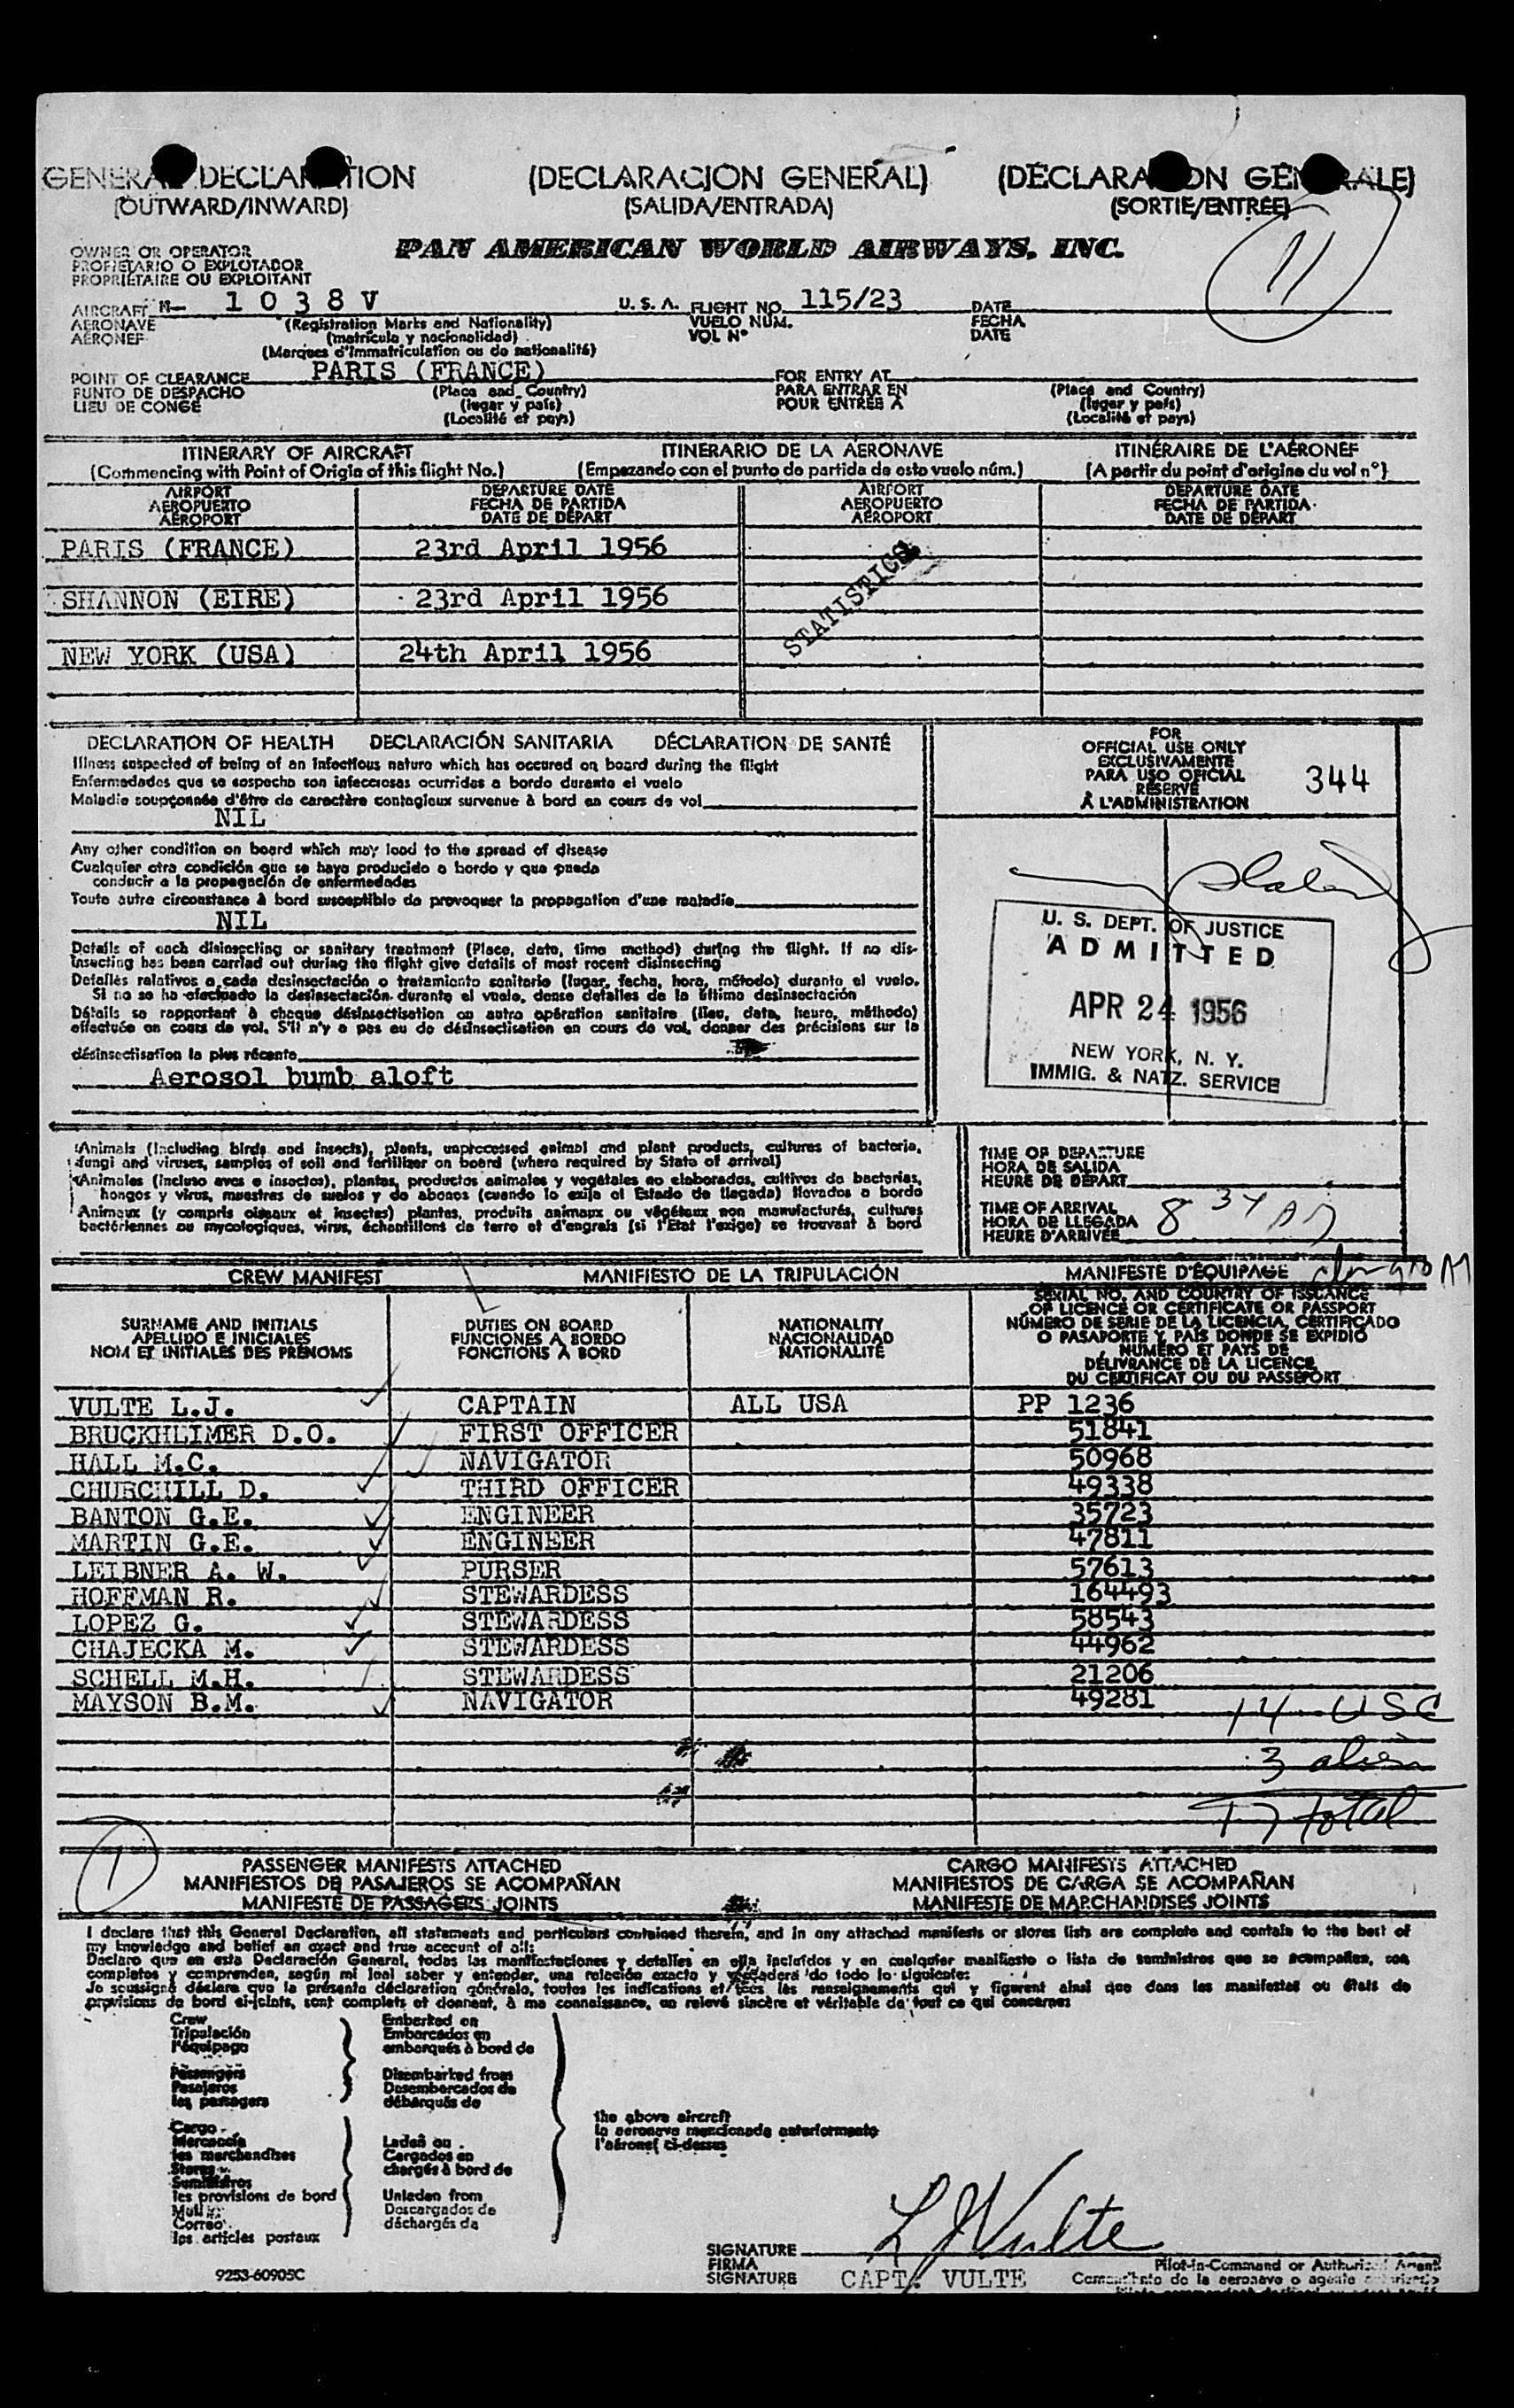 GENERAL DECLARATION (DECLARACIÓN GENERAL) (DÉCLARATION GÉNÉRALE)
(OUTWARD/INWARD) (SALIDA/ENTRADA) (SORTIE/ENTRÉE)
11
OWNER OR OPERATOR PAN AMERICAN WORLD AIRWAYS, INC.
PROPIETARIO O EXPLOTADOR
PROPRIÉTAIRE OU EXPLOITANT
AIRCRAFT N- 1038V U. S. A. FLIGHT NO. 115/23 DATE
AERONAVE (Registration Marks and Nationality) VUELO NÚM. FECHA
AÉRONEF (matrícula y nacionalidad) VOL N° DATE
(Marques d'immatriculation ou de nationalité)
POINT OF CLEARANCE PARIS (FRANCE) FOR ENTRY AT
PUNTO DE DESPACHO (Place and Country) PARA ENTRAR EN (Place and Country)
LIEU DE CONGÉ (lugar y país) POUR ENTRÉE À (lugar y país)
(Localité et pays) (Localité et pays)
ITINERARY OF AIRCRAFT ITINERARIO DE LA AERONAVE ITINÉRAIRE DE L'AÉRONEF
(Commencing with Point of Origin of this flight No.) (Empezando con el punto de partida de esto vuelo núm.) (A partir du point d'origine du vol n°)
AIRPORT DEPARTURE DATE AIRPORT DEPARTURE DATE
AEROPUERTO FECHA DE PARTIDA AEROPUERTO FECHA DE PARTIDA
AÉROPORT DATE DE DÉPART AÉROPORT DATE DE DÉPART
PARIS (FRANCE) 23rd April 1956
SHANNON (EIRE) 23rd April 1956
STATISTICS
NEW YORK (USA) 24th April 1956
DECLARATION OF HEALTH DECLARACIÓN SANITARIA DÉCLARATION DE SANTÉ
Illness suspected of being of an infectious nature which has occured on board during the flight
Enfermedades que se sospecha son infecciosas ocurridas a bordo durante el vuelo
Maladie soupçonnée d'être de caractère contagieux survenue à bord en cours de vol
NIL
Any other condition on board which may lead to the spread of disease
Cualquier otra condición que se haya producido a bordo y que pueda
conducir a la propagación de enfermedades
Toute autre circonstance à bord susceptible de provoquer la propagation d'une maladie
NIL
Details of each disinsecting or sanitary treatment (Place, date, time method) during the flight. If no dis-
insecting has been carried out during the flight give details of most recent disinsecting
Detalles relativos a cada desinsectación o tratamiento sanitario (lugar, fecha, hora, método) durante el vuelo.
Si no se ha efectuado la desinsectación durante el vuelo, dense detalles de la última desinsectación
Détails se rapportant à chaque désinsectisation ou autre opération sanitaire (lieu, date, heure, méthode)
effectuée en cours de vol. S'il n'y a pas eu de désinsectisation en cours de vol, donner des précisions sur la
désinsectisation la plus récente
Aerosol bumb aloft
FOR
OFFICIAL USE ONLY
EXCLUSIVAMENTE
PARA USO OFICIAL 344
RÉSERVÉ
À L'ADMINISTRATION
U. S. DEPT. OF JUSTICE
ADMITTED
APR 24 1956
NEW YORK, N. Y.
IMMIG. & NATZ. SERVICE
Animals (including birds and insects), plants, unprocessed animal and plant products, cultures of bacteria,
fungi and viruses, samples of soil and fertilizer on board (where required by State of arrival)
Animales (incluso aves e insectos), plantas, productos animales y vegetales no elaborados, cultivos de bacterias,
hongos y virus, muestras de suelos y de abonos (cuando lo exija el Estado de llegada) llevados a bordo
Animaux (y compris oiseaux et insectes) plantes, produits animaux ou végétaux non manufacturés, cultures
bactériennes ou mycologiques, virus, échantillons de terre et d'engrais (si l'Etat l'exige) se trouvant à bord
TIME OF DEPARTURE
HORA DE SALIDA
HEURE DE DÉPART
TIME OF ARRIVAL
HORA DE LLEGADA 8 37 A
HEURE D'ARRIVÉE
CREW MANIFEST MANIFIESTO DE LA TRIPULACIÓN MANIFESTE D'ÉQUIPAGE
SURNAME AND INITIALS DUTIES ON BOARD NATIONALITY SERIAL NO. AND COUNTRY OF ISSUANCE
APELLIDO E INICIALES FUNCIONES A BORDO NACIONALIDAD OF LICENCE OR CERTIFICATE OR PASSPORT
NOM ET INITIALES DES PRÉNOMS FONCTIONS À BORD NATIONALITÉ NÚMERO DE SERIE DE LA LICENCIA, CERTIFICADO
O PASAPORTE Y PAÍS DONDE SE EXPIDIÓ
NUMÉRO ET PAYS DE
DÉLIVRANCE DE LA LICENCE
DU CERTIFICAT OU DU PASSEPORT
VULTE L.J. CAPTAIN ALL USA PP 1236
BRUCKHLIMER D.O. FIRST OFFICER 51841
HALL M.C. NAVIGATOR 50968
CHURCHILL D. THIRD OFFICER 49338
BANTON G.E. ENGINEER 35723
MARTIN G.E. ENGINEER 47811
LEIBNER A. W. PURSER 57613
HOFFMAN R. STEWARDESS 164493
LOPEZ G. STEWARDESS 58543
CHAJECKA M. STEWARDESS 44962
SCHELL M.H. STEWARDESS 21206
MAYSON B.M. NAVIGATOR 49281
14 USC
3 alien
17 total
1
PASSENGER MANIFESTS ATTACHED CARGO MANIFESTS ATTACHED
MANIFIESTOS DE PASAJEROS SE ACOMPAÑAN MANIFIESTOS DE CARGA SE ACOMPAÑAN
MANIFESTE DE PASSAGERS JOINTS MANIFESTE DE MARCHANDISES JOINTS
I declare that this General Declaration, all statements and particulars contained therein, and in any attached manifests or stores lists are complete and contain to the best of
my knowledge and belief an exact and true account of all:
Declaro que en esta Declaración General, todas las manifestaciones y detalles en ella incluídos y en cualquier manifiesto o lista de suministros que se acompañen, son
completos y comprenden, según mi leal saber y entender, una relación exacta y verdadera de todo lo siguiente:
Je soussigné déclare que la présente déclaration générale, toutes les indications et tous les renseignements qui y figurent ainsi que dans les manifestes ou états de
provisions de bord ci-joints, sont complets et donnent, à ma connaissance, un relevé sincère et véritable de tout ce qui concerne:
Crew Embarked on
Tripulación Embarcados en
l'équipage embarqués à bord de
Passengers Disembarked from
Pasajeros Desembarcados de
les passagers débarqués de
the above aircraft
la aeronave mencionada anteriormente
l'aéronef ci-dessus
Cargo
Mercancía Laden on
les marchandises Cargados en
Stores chargés à bord de
Suministros
les provisions de bord Unladen from
Mail Descargados de
Correo déchargés de
les articles postaux
L J Vulte
SIGNATURE
FIRMA Pilot-in-Command or Authorized Agent
9253-60905C SIGNATURE CAPT. VULTE Comandante de la aeronave o agente autorizado